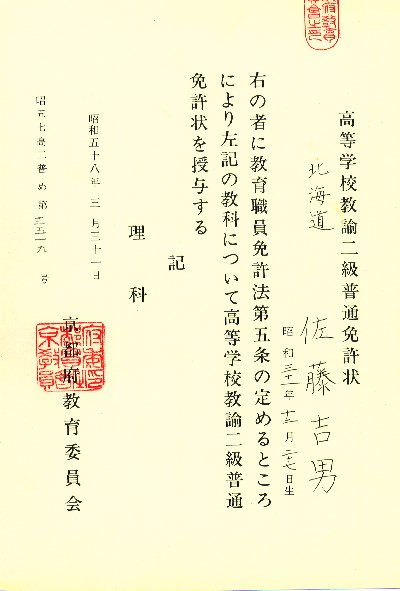 高等学校教諭二級普通免許状
北海道
佐藤吉男
昭和三十一年十二月二十七日生
右の者に教育職員免許法第五条の定めるところ
により左記の教科について高等学校教諭二級普通
免許状を授与する
記
理科
昭和五十八年三月三十一日
号
京都府教育委員会